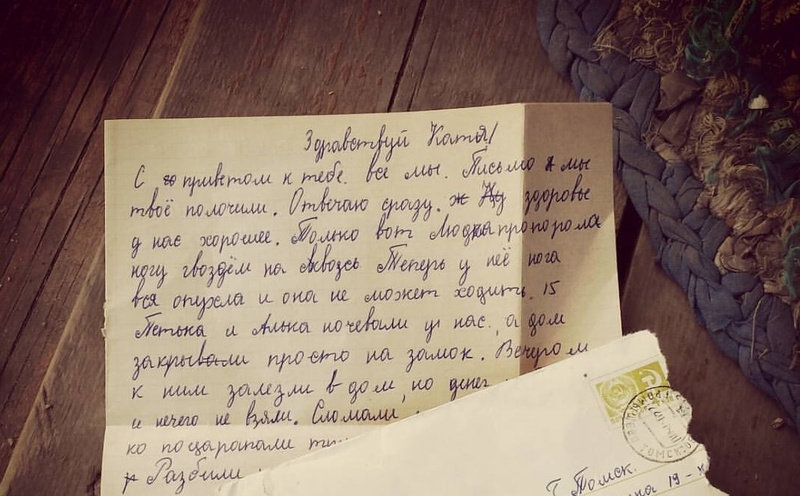 Здравствуй Катя!
С приветом к тебе. все мы. Письмо мы
твоё полочили. Отвечаю сразу. Ну здоровье
у нас хорошее. Только вот Людка пропорола
ногу гвоздём на сквозь Теперь у неё нога
вся опухла и она не может ходить. 15
Петька и Алька ночевали у нас, а дом
закрывали просто на замок. Вечером
к ним залезли в дом, но денег
и нечего не взяли. Сломали
ко поцарапали
Разбили
ТОМСК
г. Томск.
19 -